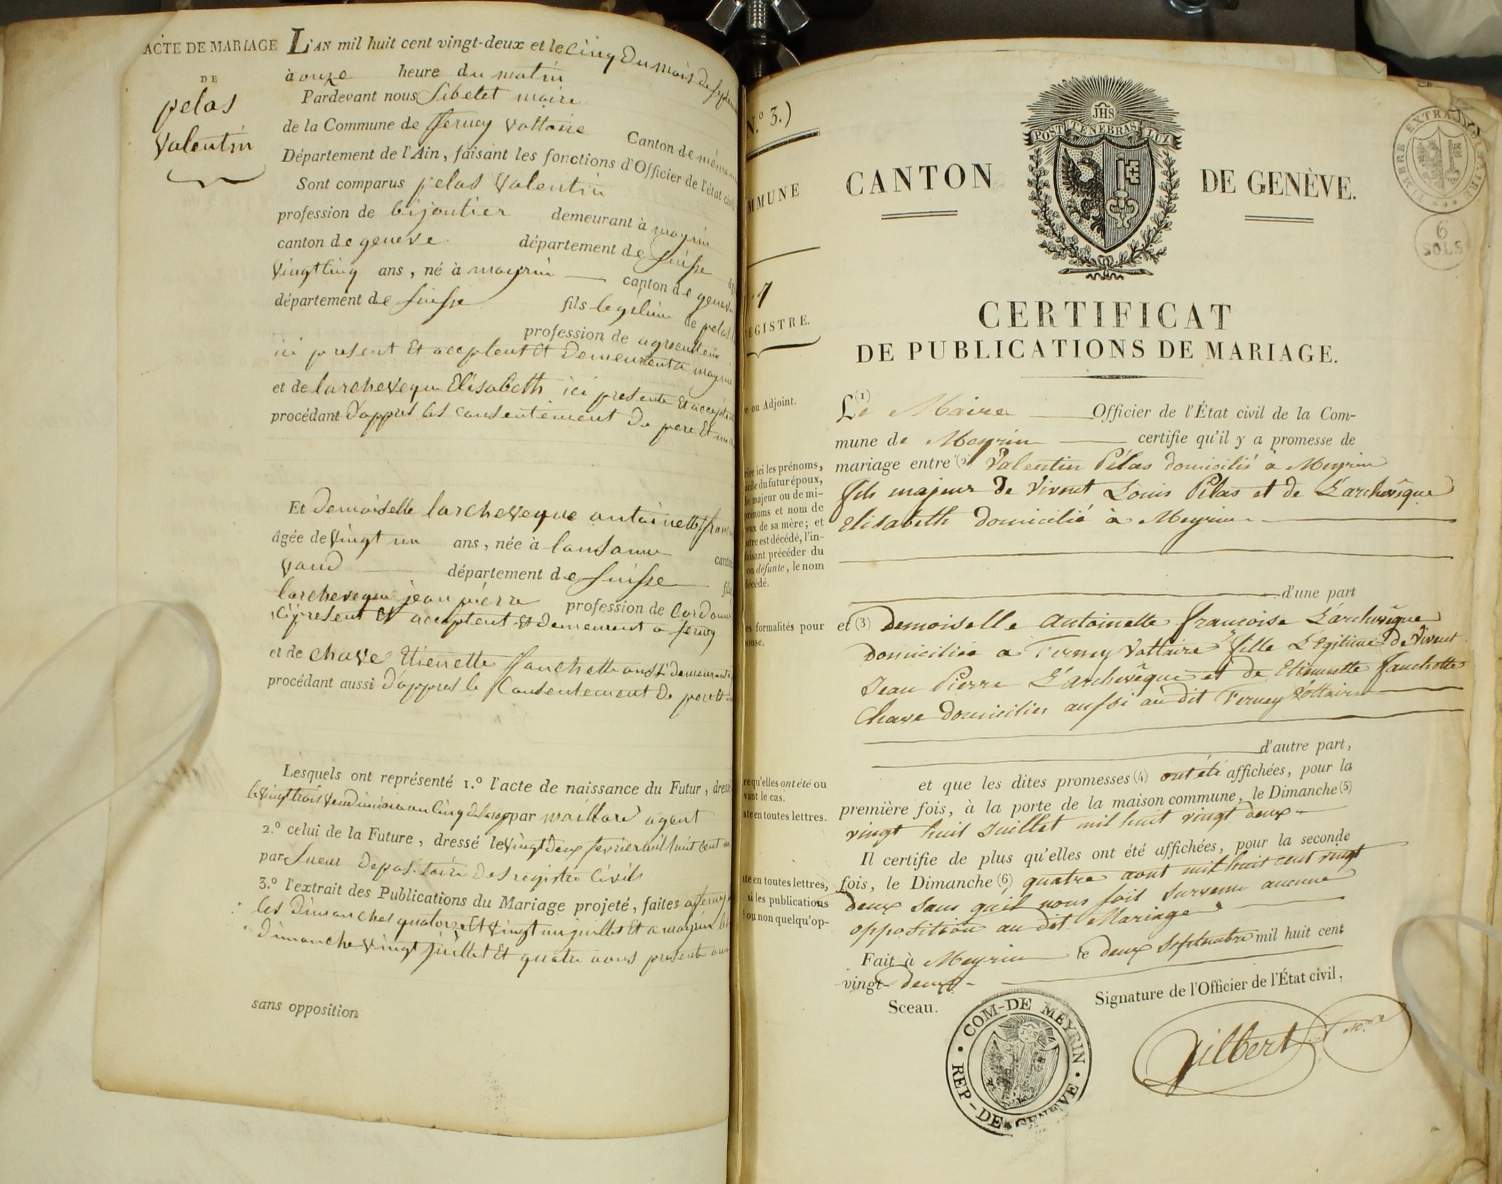 ACTE DE MARIAGE
DE
pelas
Valentin
L'AN mil huit cent vingt-deux et le Cinq Du mois de
à onze heure du matin
Pardevant nous maire
de la Commune de ferney voltaire Canton de
Département de l'Ain, faisant les fonctions d'Officier de l'état
Sont comparus pelas Valentin
profession de bijoutier demeurant à mayrin
canton de geneve département de suisse
Vingtcinq ans, né à mayrin canton de geneve
département de suisse fils légitime de pelas
profession de
ici present Et acceptent Et Demeurent a mayrin
et de larcheveque Elisabeth ici presente Et
procédant D'appres les consentement De pere Et
Et Demoiselle larcheveque antoinette
âgée de vingt un ans, née à lausanne
vaud département de suisse
larcheveque jean pierre profession de Cordonnier
ici present Et acceptent Et Demeurent a ferney
et de chave Etienette fanchette aussi Demeurant
procédant aussi D'appres le Consentement De
Lesquels ont représenté 1.° l'acte de naissance du Futur,
par maillard agent
2.° celui de la Future, dressé le vingt Deux fevrier mil huit cent
par Sueur Depositaire Des registre Civils
3.° l'extrait des Publications du Mariage projeté, faites a ferney
les Dimanches quatorze Et vingt un juillet Et a mayrin
Dimanche vingt juillet Et quatre
sans opposition
N.° 3.)
MMUNE
EGISTRE.
ou Adjoint.
ici les prénoms,
du futur époux,
majeur ou de mi-
et nom de
de sa mère; et
est décédé, l'in-
précéder du
ou défunte, le nom
formalités pour
qu'elles ont été ou
le cas.
en toutes lettres.
en toutes lettres,
les publications
ou non quelqu'op-
JHS
POST TENEBRAS LUX
CANTON DE GENÈVE.
TIMBRE EXTRAORDINAIRE
6
SOLS
CERTIFICAT
DE PUBLICATIONS DE MARIAGE.
Le (1) Maire Officier de l'État civil de la Com-
mune de Meyrin certifie qu'il y a promesse de
mariage entre (2) Valentin Pélas domicilié à Meyrin
fils majeur de Vivent Louis Pélas et de L'archevêque
Elisabeth domicilié à Meyrin
d'une part
et (3) demoiselle antoinette francoise L'archevêque
domiciliée a Ferney Voltaire fille Légitime de Vivent
Jean Pierre L'archevêque et de Etiennette fanchette
Chave domiciliés aussi au dit Ferney Voltaire
d'autre part,
et que les dites promesses (4) ont été affichées, pour la
première fois, à la porte de la maison commune, le Dimanche (5)
vingt huit Juillet mil huit vingt deux
Il certifie de plus qu'elles ont été affichées, pour la seconde
fois, le Dimanche (6) quatre aout mil huit cent vingt
deux sans qu'il nous soit survenu aucune
opposition au dit Mariage
Fait à Meyrin le deux septembre mil huit cent
vingt deux
Sceau.
Signature de l'Officier de l'État civil,
COM-DE MEYRIN
REP-DE GENEVE
Gilbert